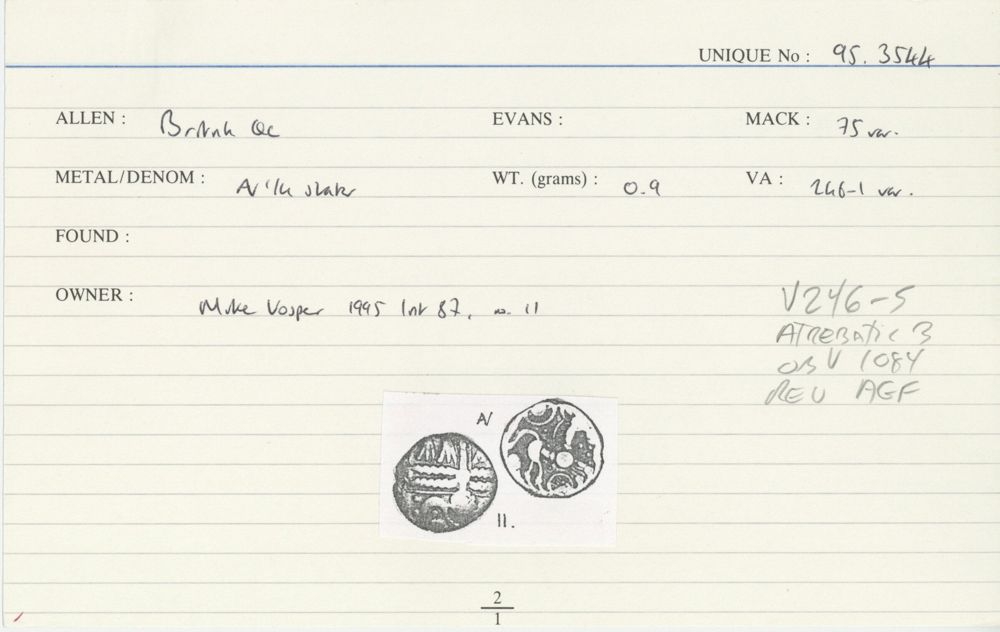 UNIQUE No : 95.3544
ALLEN : British Qc
EVANS :
MACK : 75 var.
METAL/DENOM : AV 1/4 stater
WT. (grams) : 0.9
VA : 246-1 var.
FOUND :
OWNER : Mike Vosper 1995 list 87, no. 11
V246-5
ATREBATIC 3
OBV 1084
REV AGF
AV
11.
2
1